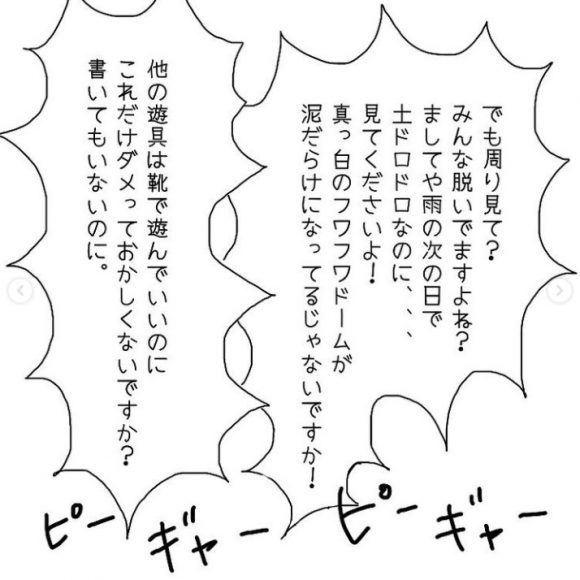 でも周り見て？
みんな脱いでますよね？
ましてや雨の次の日で
土ドロドロなのに、、、
見てくださいよ！
真っ白のフワフワドームが
泥だらけになってるじゃないですか！
他の遊具は靴で遊んでいいのに
これだけダメっておかしくないですか？
書いてもいないのに。
ピー
ギャー
ピー
ギャー